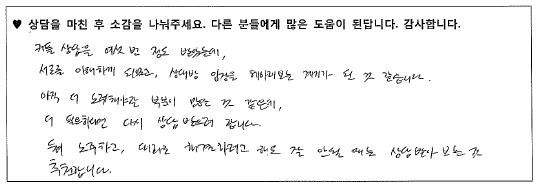 ♥ 상담을 마친 후 소감을 나눠주세요. 다른 분들에게 많은 도움이 된답니다. 감사합니다.
커플 상담을 여섯 번 정도 받았는데,
서로를 이해하게 되었고, 상대방 입장을 헤아려보는 계기가 된 것 같습니다.
아직 더 노력해야할 부분이 많은 것 같은데,
더 필요하다면 다시 상담 받으려 합니다.
둘이 노력하고, 때로는 해결하려고 해도 잘 안될 때는 상담 받아 보는 것
추천합니다.